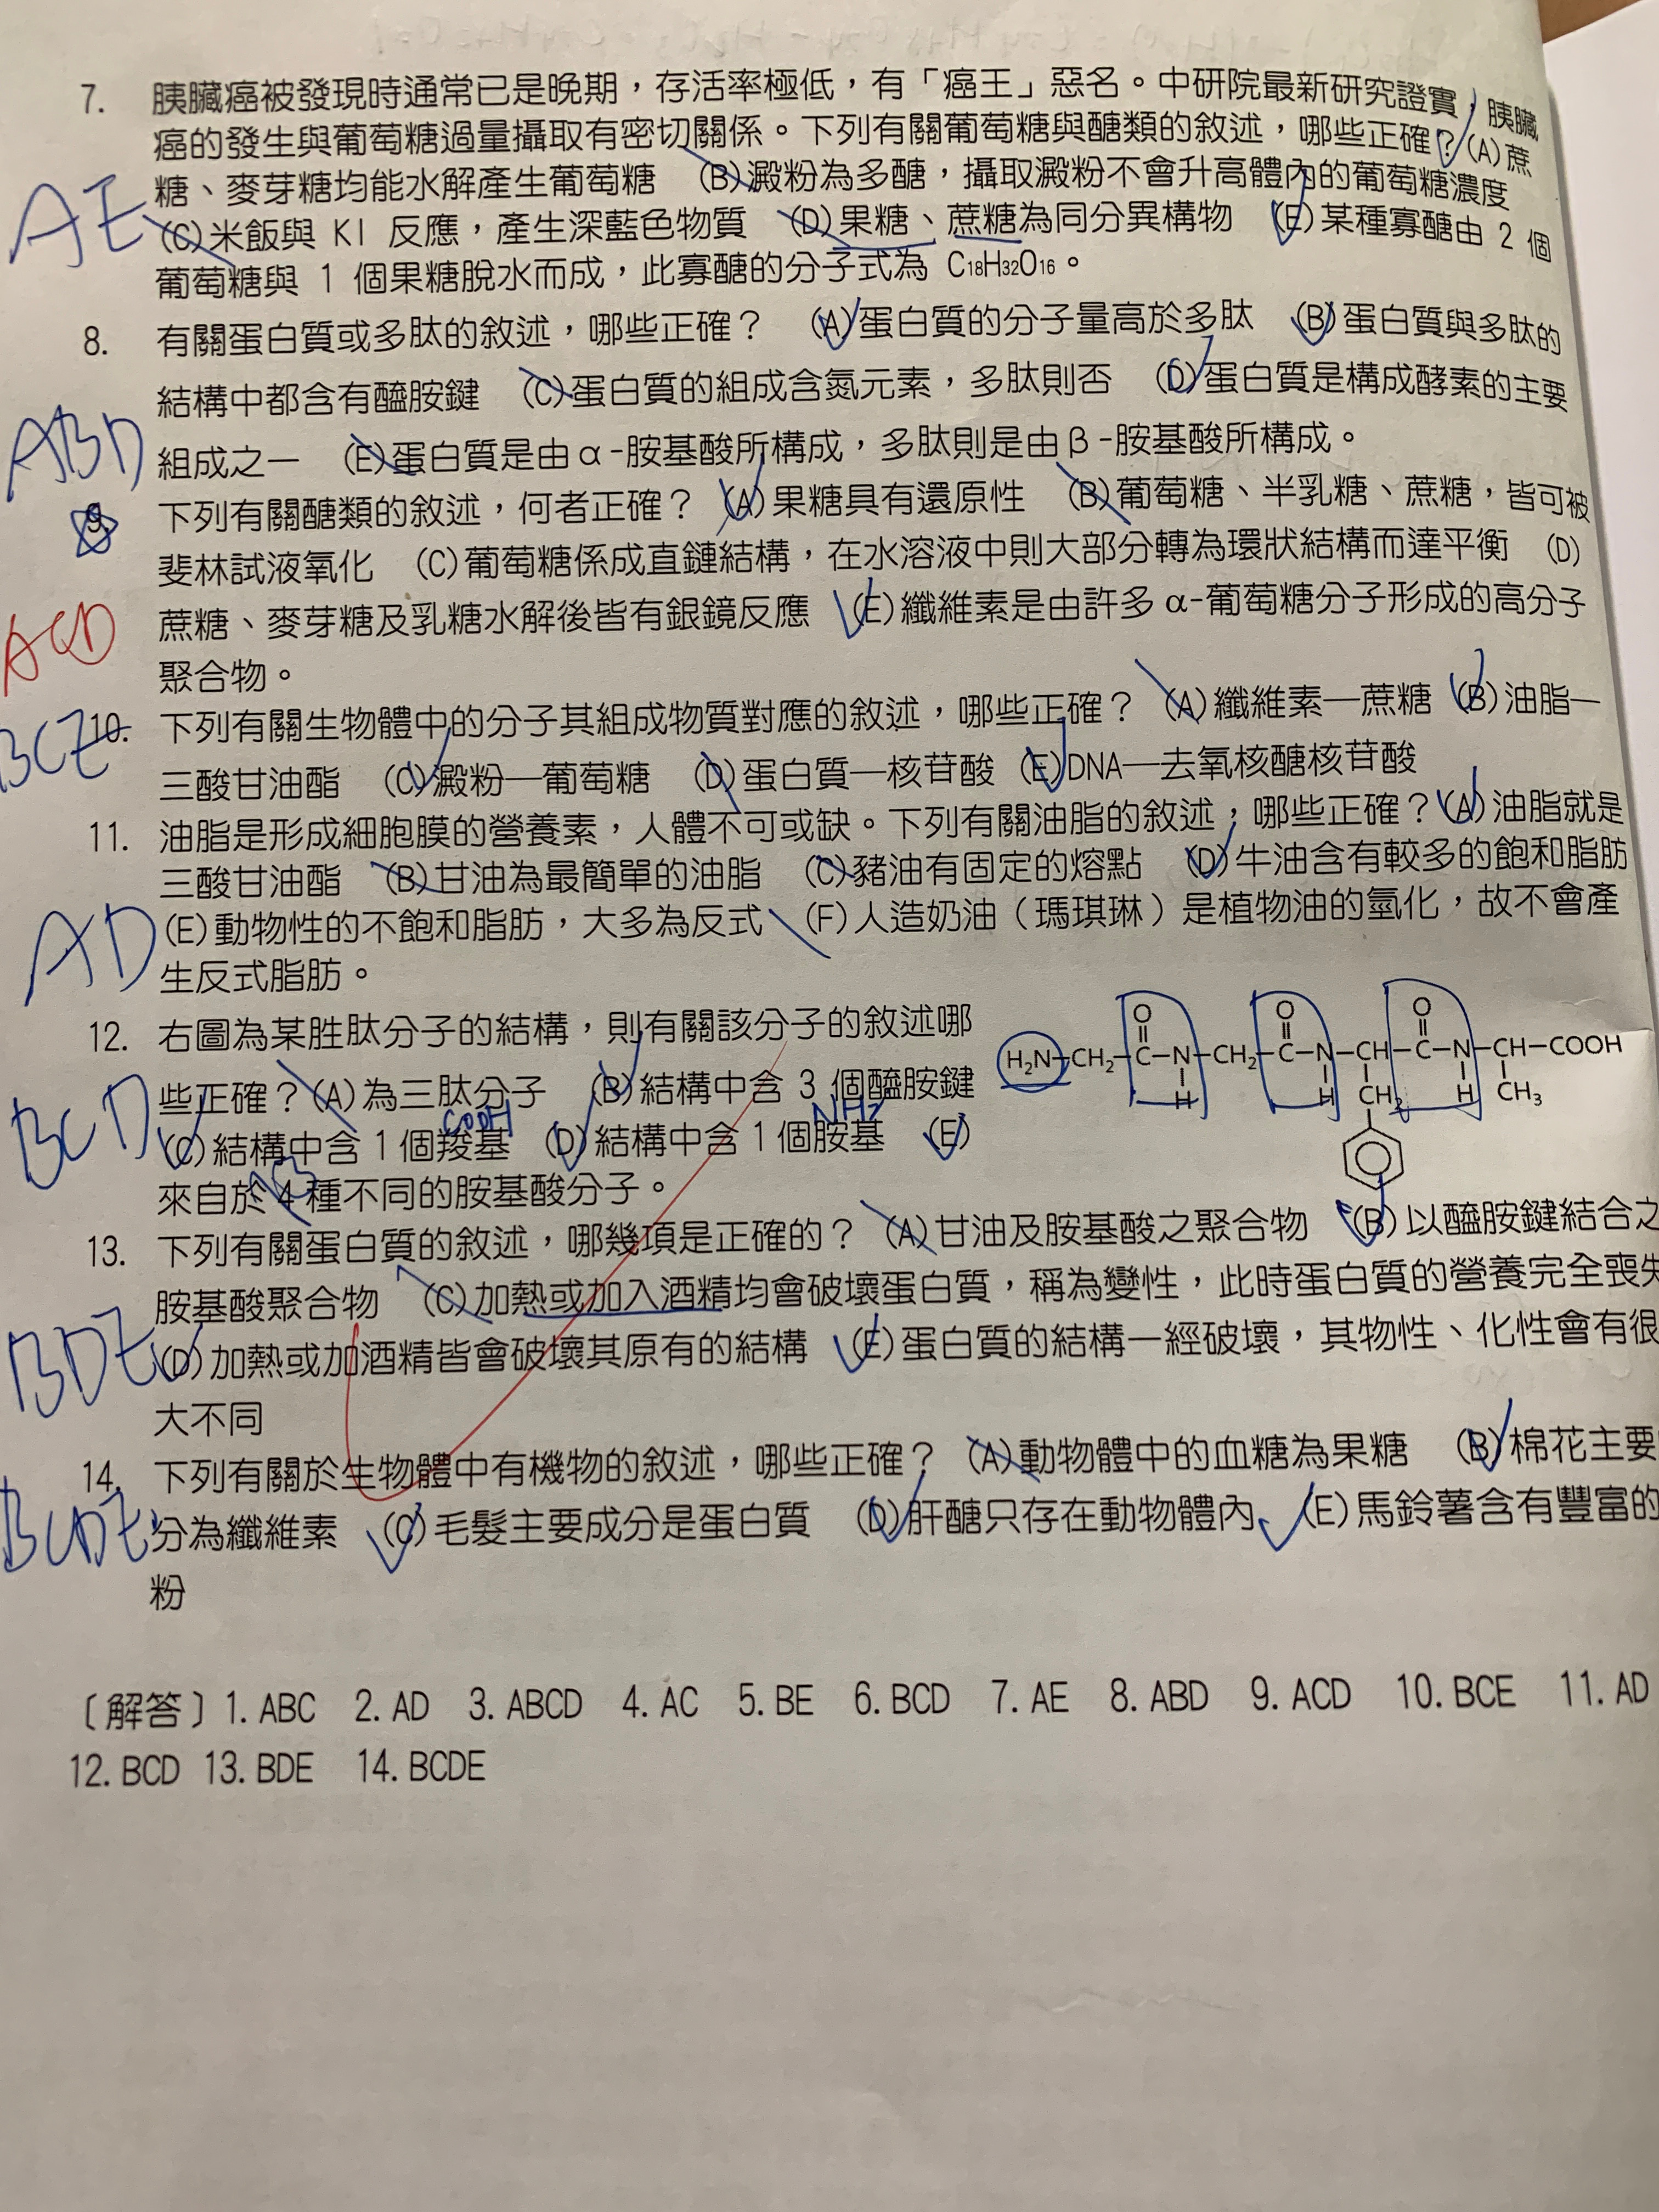 7. 胰臟癌被發現時通常已是晚期，存活率極低，有「癌王」惡名。中研院最新研究證實，胰臟
癌的發生與葡萄糖過量攝取有密切關係。下列有關葡萄糖與醣類的敘述，哪些正確？(A)蔗
糖、麥芽糖均能水解產生葡萄糖 (B)澱粉為多醣，攝取澱粉不會升高體內的葡萄糖濃度
AE
(C)米飯與 KI 反應，產生深藍色物質 (D)果糖、蔗糖為同分異構物 (E)某種寡醣由 2 個
葡萄糖與 1 個果糖脫水而成，此寡醣的分子式為 C₁₈H₃₂O₁₆。
8. 有關蛋白質或多肽的敘述，哪些正確？ (A)蛋白質的分子量高於多肽 (B)蛋白質與多肽的
結構中都含有醯胺鍵 (C)蛋白質的組成含氮元素，多肽則否 (D)蛋白質是構成酵素的主要
ABD
組成之一 (E)蛋白質是由α-胺基酸所構成，多肽則是由β-胺基酸所構成。
9. 下列有關醣類的敘述，何者正確？ (A)果糖具有還原性 (B)葡萄糖、半乳糖、蔗糖，皆可被
斐林試液氧化 (C)葡萄糖係成直鏈結構，在水溶液中則大部分轉為環狀結構而達平衡 (D)
ACD
蔗糖、麥芽糖及乳糖水解後皆有銀鏡反應 (E)纖維素是由許多α-葡萄糖分子形成的高分子
聚合物。
BCE
10. 下列有關生物體中的分子其組成物質對應的敘述，哪些正確？ (A)纖維素—蔗糖 (B)油脂—
三酸甘油酯 (C)澱粉—葡萄糖 (D)蛋白質—核苷酸 (E)DNA—去氧核醣核苷酸
11. 油脂是形成細胞膜的營養素，人體不可或缺。下列有關油脂的敘述，哪些正確？(A)油脂就是
三酸甘油酯 (B)甘油為最簡單的油脂 (C)豬油有固定的熔點 (D)牛油含有較多的飽和脂肪
AD
(E)動物性的不飽和脂肪，大多為反式 (F)人造奶油（瑪琪琳）是植物油的氫化，故不會產
生反式脂肪。
12. 右圖為某胜肽分子的結構，則有關該分子的敘述哪
些正確？(A)為三肽分子 (B)結構中含 3 個醯胺鍵
BCD
COOH NH₂
(C)結構中含 1 個羧基 (D)結構中含 1 個胺基 (E)
來自於 4 種不同的胺基酸分子。
O O O
H₂N—CH₂—C—N—CH₂—C—N—CH—C—N—CH—COOH
H H CH₂ H CH₃
13. 下列有關蛋白質的敘述，哪幾項是正確的？ (A)甘油及胺基酸之聚合物 (B)以醯胺鍵結合之
胺基酸聚合物 (C)加熱或加入酒精均會破壞蛋白質，稱為變性，此時蛋白質的營養完全喪失
BDE
(D)加熱或加酒精皆會破壞其原有的結構 (E)蛋白質的結構一經破壞，其物性、化性會有很
大不同
14. 下列有關於生物體中有機物的敘述，哪些正確？ (A)動物體中的血糖為果糖 (B)棉花主要
BCDE
分為纖維素 (C)毛髮主要成分是蛋白質 (D)肝醣只存在動物體內 (E)馬鈴薯含有豐富的
粉
〔解答〕1. ABC 2. AD 3. ABCD 4. AC 5. BE 6. BCD 7. AE 8. ABD 9. ACD 10. BCE 11. AD
12. BCD 13. BDE 14. BCDE